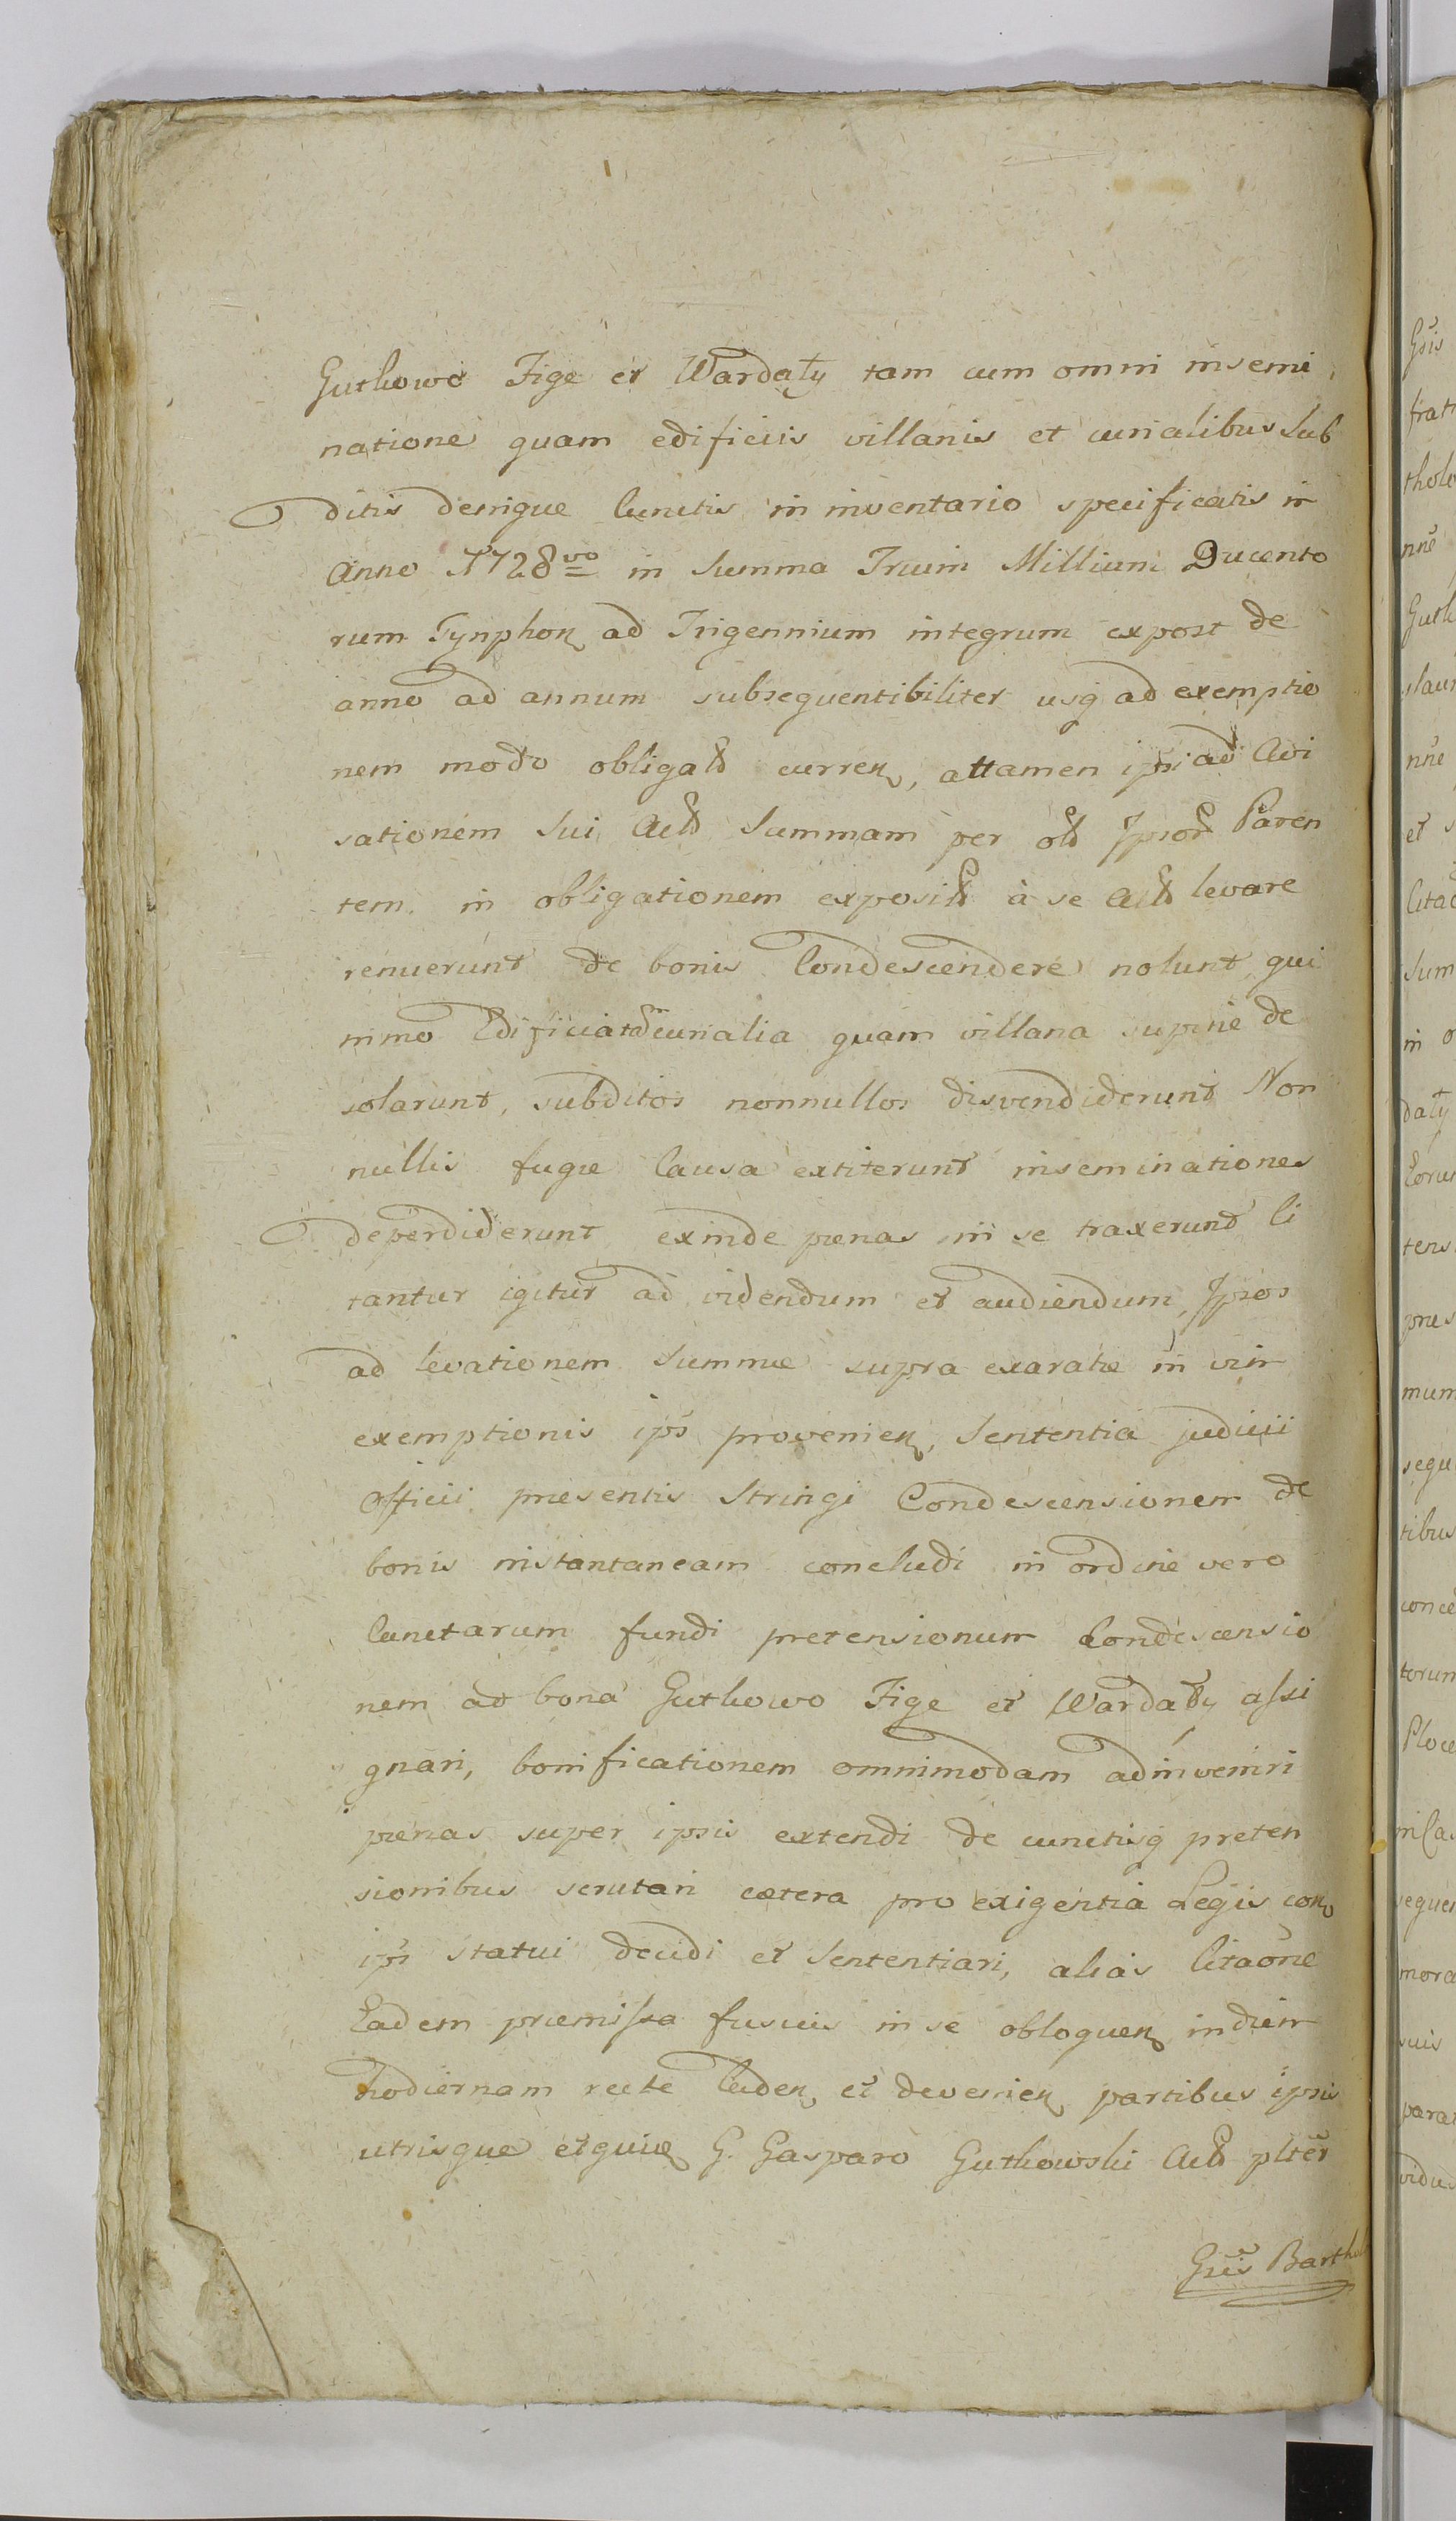 Gutkowo Fige et Wardały tam cum omni insemi
natione quam edificiis villanis et curialibus Sub
ditis denique Cunctis in inventario specificatis in
Anno 1728vo in Summa Trium Millium Ducento
rum Tynphoꝝ ad Trigennium integrum expost de
anno ad annum subsequentibiliter usqꝫ ad exemptio
nem modo obligat̄t curreꝝ, attamen ipsi ad Avi
sationem Sui Act̄ Summam per ol̄t Ipsor̄ Paren
tem in obligationem exposit̄ à se Act̄ levare
renuerunt de bonis Condescendere nolunt, qui
nimo Edificia tam curialia quam villana supine de
solarunt, subditos nonnullos disvendiderunt Non
nullis fugæ Causa extiterunt inseminationes
deperdiderunt exinde pænas in se traxerunt Ci
tantur igitur ad videndum et audiendum, Ipsos
ad levationem Summæ supra exaratæ in vim
exemptionis ips̄ provenieꝝ, Sententia judicii
Officii præsentis Stringi Condescensionem de
bonis instantaneam concludi in ordine vero
Cunctarum fundi pretensionum Condescensio
nem ad bona Gutkowo Fige et Wardały assi
gnari, bonificationem omnimodam adinveniri
pænas super ipsis extendi de cunctisqꝫ preten
sionibus scrutari cætera pro exigentia Legis coꝝ
ips̄ statui decidi et Sententiari, alias Citaōne
Eadem præmissa fusius in se obloqueꝝ in diem
hodiernam recte Cadeꝝ et devenieꝝ partibus ipsis
utrisque G. Gasparo Gutkowski Act̄ pltēr
Gn̄is Barthol